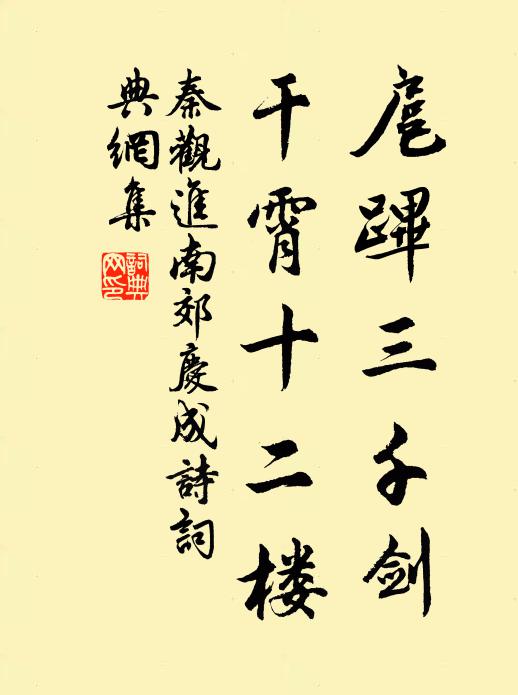 扈蹕三千剑
干霄十二楼
秦觀進南郊慶成詩詞
典網集
詞典
网印